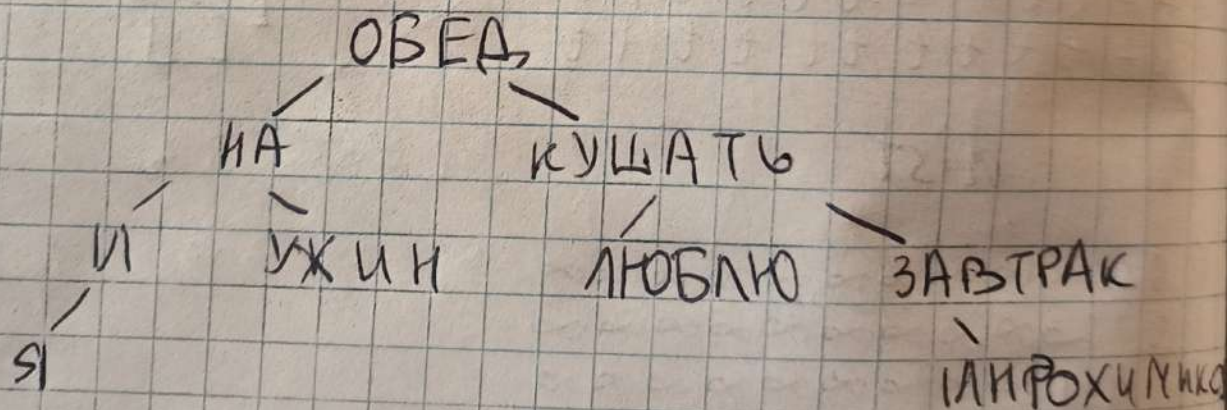 ОБЕД
НА КУШАТЬ
И УЖИН ЛЮБЛЮ ЗАВТРАК
Я